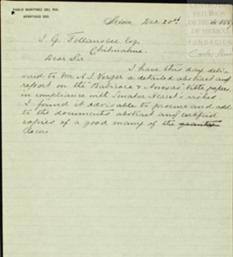 PABLO MARTINEZ DEL RIO
Dec 20th
J. G. Follansbee Esq.
Chihuahua.
Dear Sir
I have this day deli-
vered to Mr. A. J. Verger a detailed abstract and
report on the Babicora & title papers
in compliance with Senator Hearst's wishes
I found it advisable to procure and add
to the documents abstract and certified
copies of a good many of the